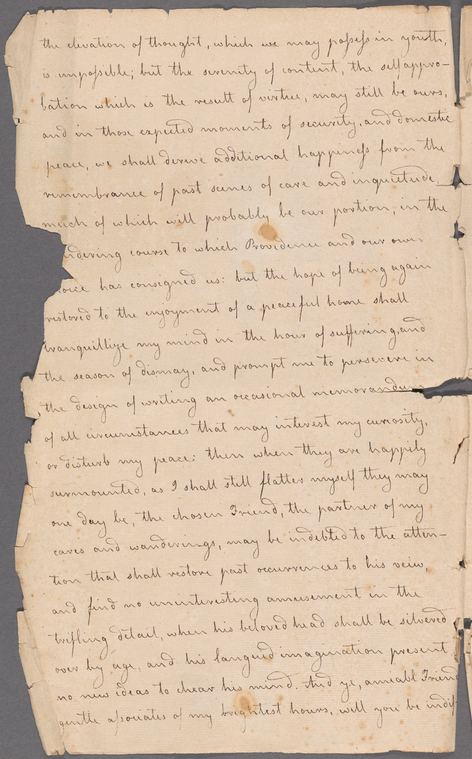 the elevation of thought, which we may possess in youth,
is impossible; but the serenity of content, the selfappro-
bation which is the result of virtue, may still be ours,
and in those expected moments of security, and domestic
peace, we shall derive additional happiness from the
remembrance of past scenes of care and inquietude
much of which will probably be our portion, in the
ndering course to which Providence and our own
hoice has consigned us: but the hope of being again
restored to the enjoyment of a peaceful home shall
tranquillize my mind in the hour of suffering, and
the season of dismay, and prompt me to persevere in
the design of writing an occasional memorandum
of all circumstances that may interest my curiosity,
or disturb my peace: then when they are happily
surmounted, as I shall still flatter myself they may
one day be, the chosen Friend, the partner of my
cares and wanderings, may be indebted to the atten-
tion that shall restore past occurrences to his veiw
and find no uninteresting amusement in the
trifling detail, when his beloved head shall be silvered
over by age, and his languid imagination present
no new ideas to chear his mind. And ye, ameabl Friend
gentle associates of my brightest hours, will you be indif